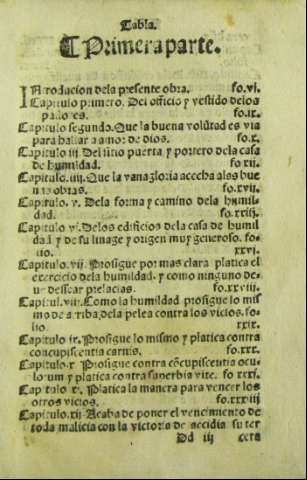 Tabla.
¶ Primera parte.
INtroducion dela presente obra. fo.vi.
Capitulo primero. Del officio y vestido delos
pastores. fo.ix.
Capitulo segundo. Que la buena volūtad es via
para hallar a amor de dios. fo.x.
Capitulo iij. Del sitio puerta y portero dela casa
de humildad. fo xij.
Capitulo.iiij. Que la vanagloria acecha alos bue
nas obras. fo.xvij.
Capitulo. v. Dela forma y camino dela humil-
dad. fo.xxiij.
Capitulo vi. Delos edificios dela casa de humil
dad y de su linage y origen muy generoso. fo-
lio. xxvi.
Capitulo. vij. Prosigue por mas clara platica el
exercicio dela humildad. y como ninguno de-
ue dessear prelacias. fo.xxviij.
Capitul.viij. Como la humildad prosigue lo mis
mo de arriba, dela pelea contra los vicios. fo-
lio xxix.
Capitulo ix. Prosigue lo mismo y platica contra
concupiscentia carnis. fo.xxx.
Capitulo.x Prosigue contra cōcupiscentia ocu-
lorum y platica contra superbia vite. fo xxxi.
Capitulo xi. Platica la manera para vencer los
otros vicios. fo.xxxiij
Capitulo.xij Acaba de poner el vencimiento de
toda malicia con la victoria de accidia su ter
Dd iij cera